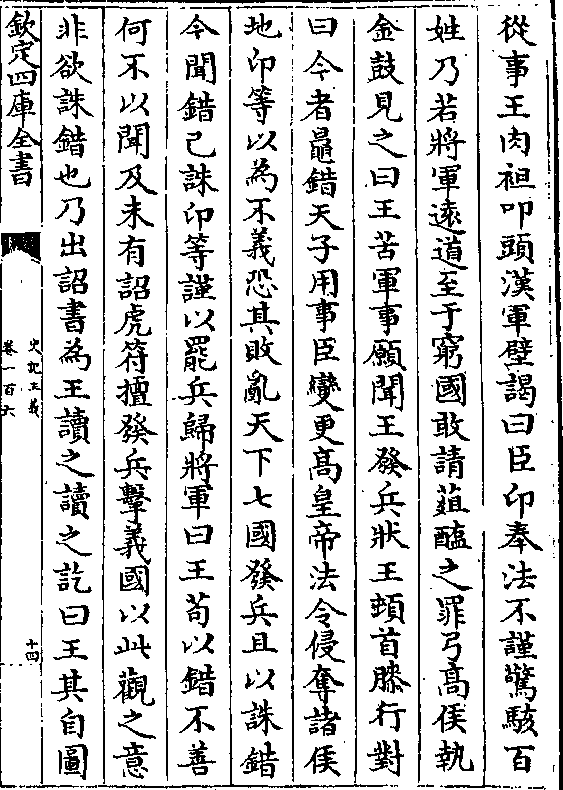 從事王肉袒叩頭漢軍壁謁曰臣卬奉法不謹驚駭百
姓乃苦將軍遠道至于窮國敢請菹醢之罪弓高侯執
金鼓見之曰王苦軍事願聞王發兵狀王頓首膝行對
曰今者鼂錯天子用事臣變更高皇帝法令侵奪諸侯
地卬等以為不義恐其敗亂天下七國發兵且以誅錯
今聞錯已誅卬等謹以罷兵歸將軍曰王苟以錯不善
何不以聞及未有詔虎符擅發兵擊義國以此觀之意
非欲誅錯也乃出詔書為王讀之讀之訖曰王其自圖
欽定四庫全書
史記正義
卷一百六
十四